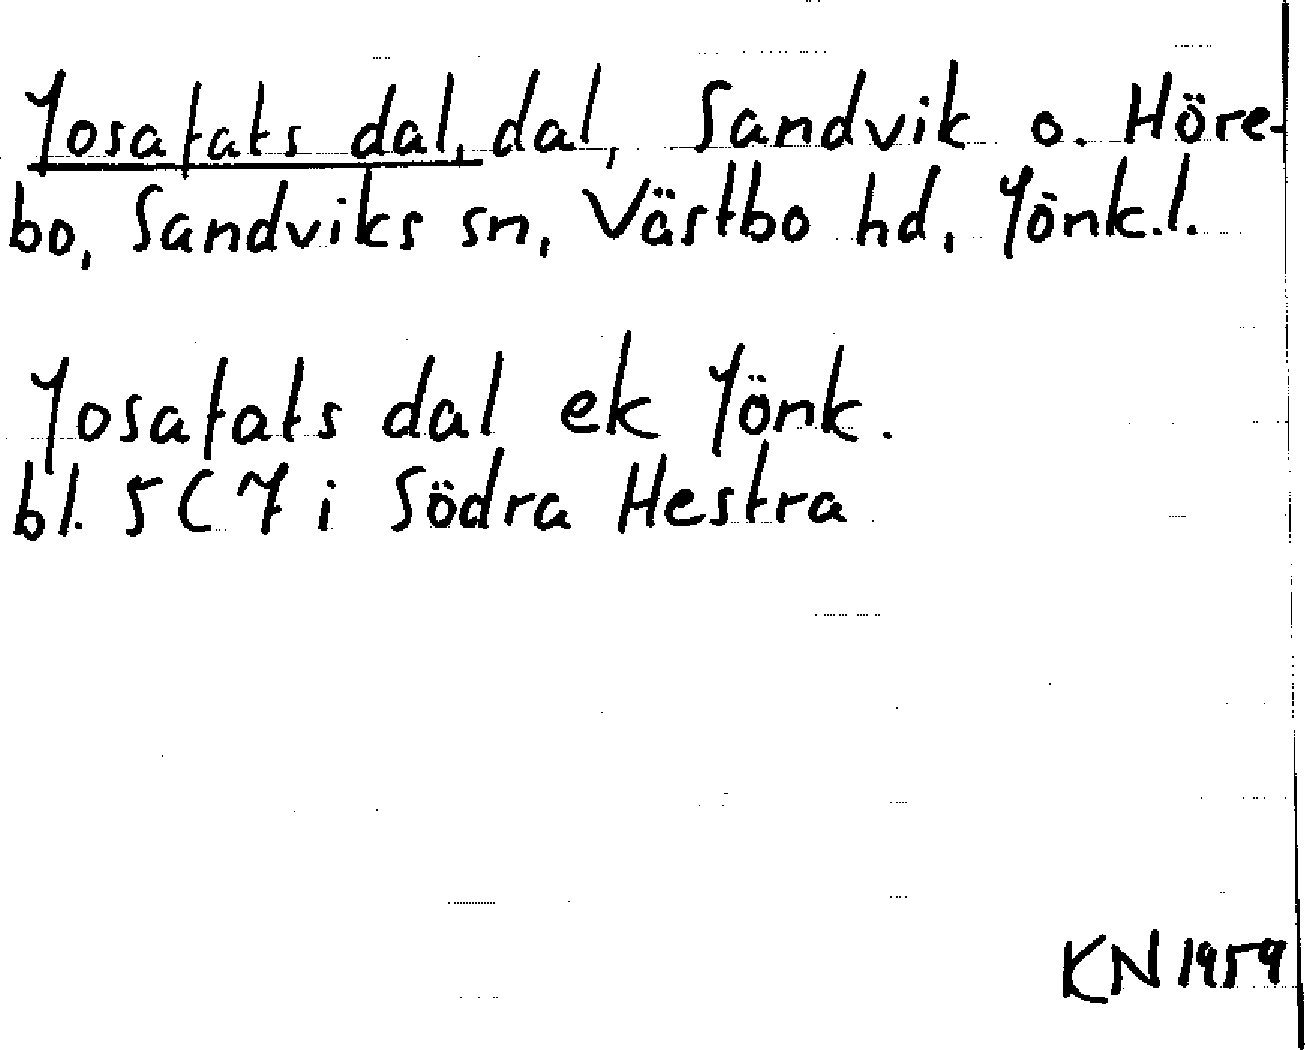 Josafats dal, dal, Sandvik o. Höre-
bo, Sandviks sn, Västbo hd, Jönk.l.
Josafats dal ek Jönk.
bl. 5C7 i Södra Hestra
KN 1959